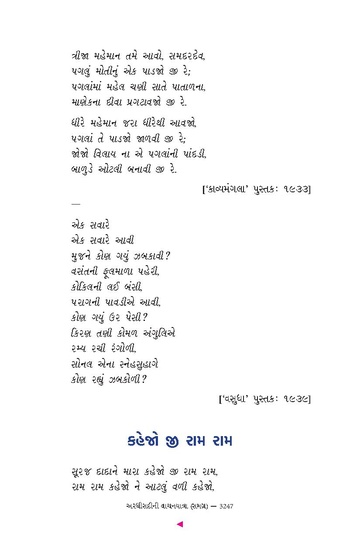 ત્રીજા મહેમાન તમે આવો, સમદરદેવ,
પગલું મોતીનું એક પાડજો જી રે;
પગલાંમાં મહેલ ચણી સાતે પાતાળના,
માણેકના દીવા પ્રગટાવજો જી રે.
ધીરે મહેમાન જરા ધીરેથી આવજો,
પગલાં તે પાડજો જાળવી જી રે;
જોજો વિલાય ના એ પગલાંની પાંદડી,
બાળુડે ઓટલી બનાવી જી રે.
['કાવ્યમંગલા' પુસ્તક: ૧૯૩૩]
—
એક સવારે
એક સવારે આવી
મુજને કોણ ગયું ઝબકાવી?
વસંતની ફૂલમાળા પહેરી,
કોકિલની લઈ બંસી,
પરાગની પાવડીએ આવી,
કોણ ગયું ઉર પેસી?
કિરણ તણી કોમળ અંગુલિએ
રમ્ય રચી રંગોળી,
સોનલ એના સ્નેહસુહાગે
કોણ રહ્યું ઝબકોળી?
['વસુધા' પુસ્તક: ૧૯૩૯]
કહેજો જી રામ રામ
સૂરજ દાદાને મારા કહેજો જી રામ રામ,
રામ રામ કહેજો ને આટલું વળી કહેજો,
અરધીસદીની વાચનયાત્રા (સમગ્ર) — 3247